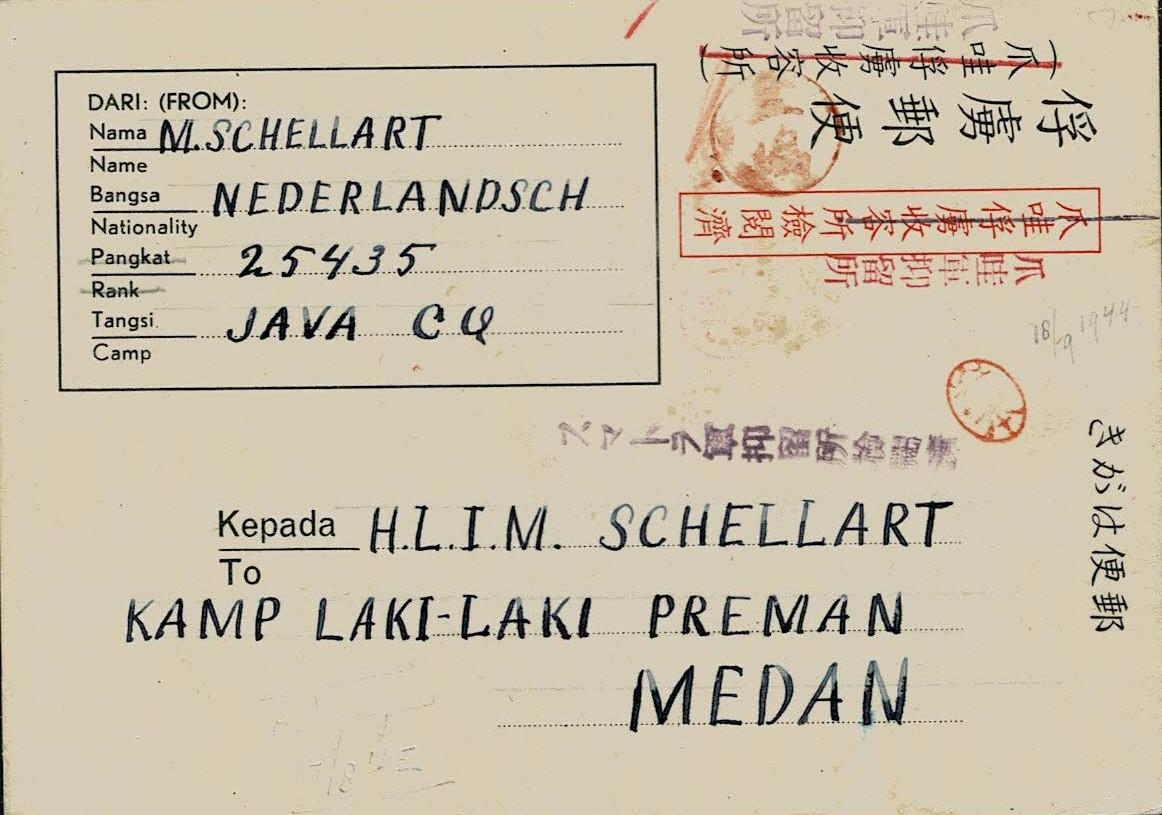 爪哇軍抑留所
(爪哇俘虜收容所)
俘虜郵便
DARI: (FROM):
Nama M. SCHELLART
Name
Bangsa NEDERLANDSCH
Nationality
Pangkat 25435
Rank
Tangsi JAVA CQ
Camp
爪哇俘虜收容所檢閲濟
爪哇軍抑留所
18/9 1944
スマトラ軍抑留所
郵便はがき
Kepada H.L.I.M. SCHELLART
To
KAMP LAKI-LAKI PREMAN
MEDAN